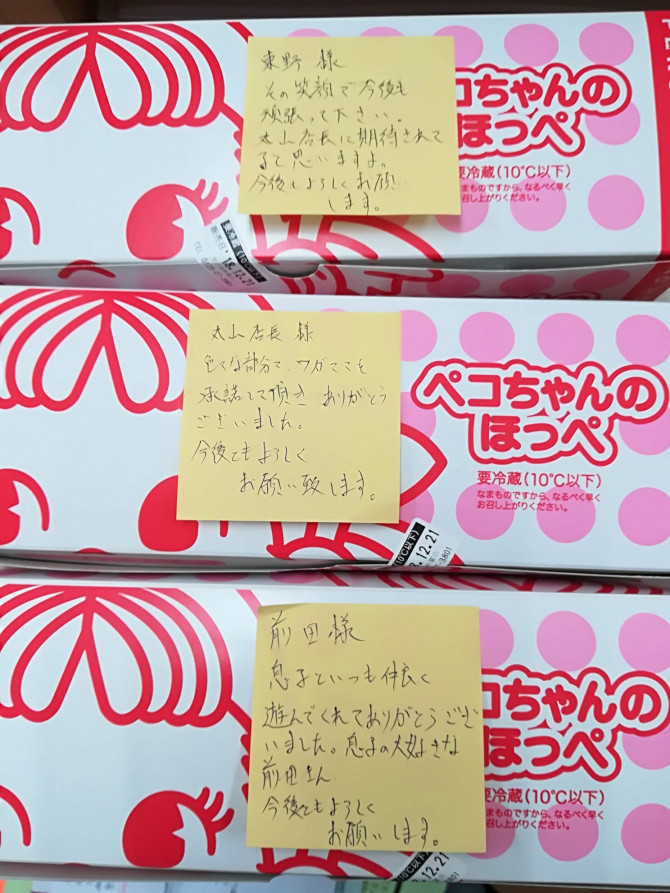 東野 様
その笑顔で今後も
頑張って下さい。
丸山店長に期待されて
ると思いますよ。
今後もよろしくお願い
します。
コちゃんの
ほっぺ
要冷蔵(10℃以下)
なまものですから、なるべく早く
お召し上がりください。
要冷蔵(10℃以下)
販売日
18.12.21
丸山店長 様
色々な部分で、ワガママを
承諾して頂き ありがとう
ございました。
今後ともよろしく
お願い致します。
ペコちゃんの
ほっぺ
要冷蔵(10℃以下)
なまものですから、なるべく早く
お召し上がりください。
(10℃以下)
12.21
-3801
前田様
息子といつも仲良く
遊んでくれてありがとうござ
いました。息子の大好きな
前田さん
今後ともよろしく
お願いします。
コちゃんの
ほっぺ
要冷蔵(10℃以下)
なまものですから、なるべく早く
お召し上がりください。
(10℃以下)
12.21